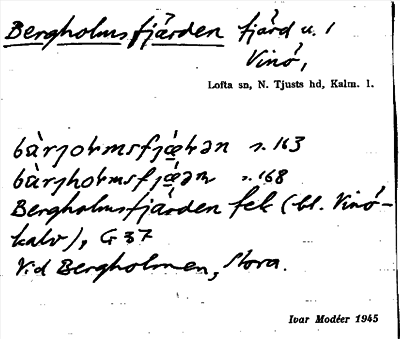 Bergholmsfjärden fjärd u. 1
Vinö,
Lofta sn, N. Tjusts hd, Kalm. l.
bàrjoɫmsfjæ̣ɫən s. 163
bàrjhoɫmsfjæ̣ən s. 168
Bergholmsfjärden fek (bl. Vinö-
kalv), G 37
Vid Bergholmen, Stora.
Ivar Modéer 1945